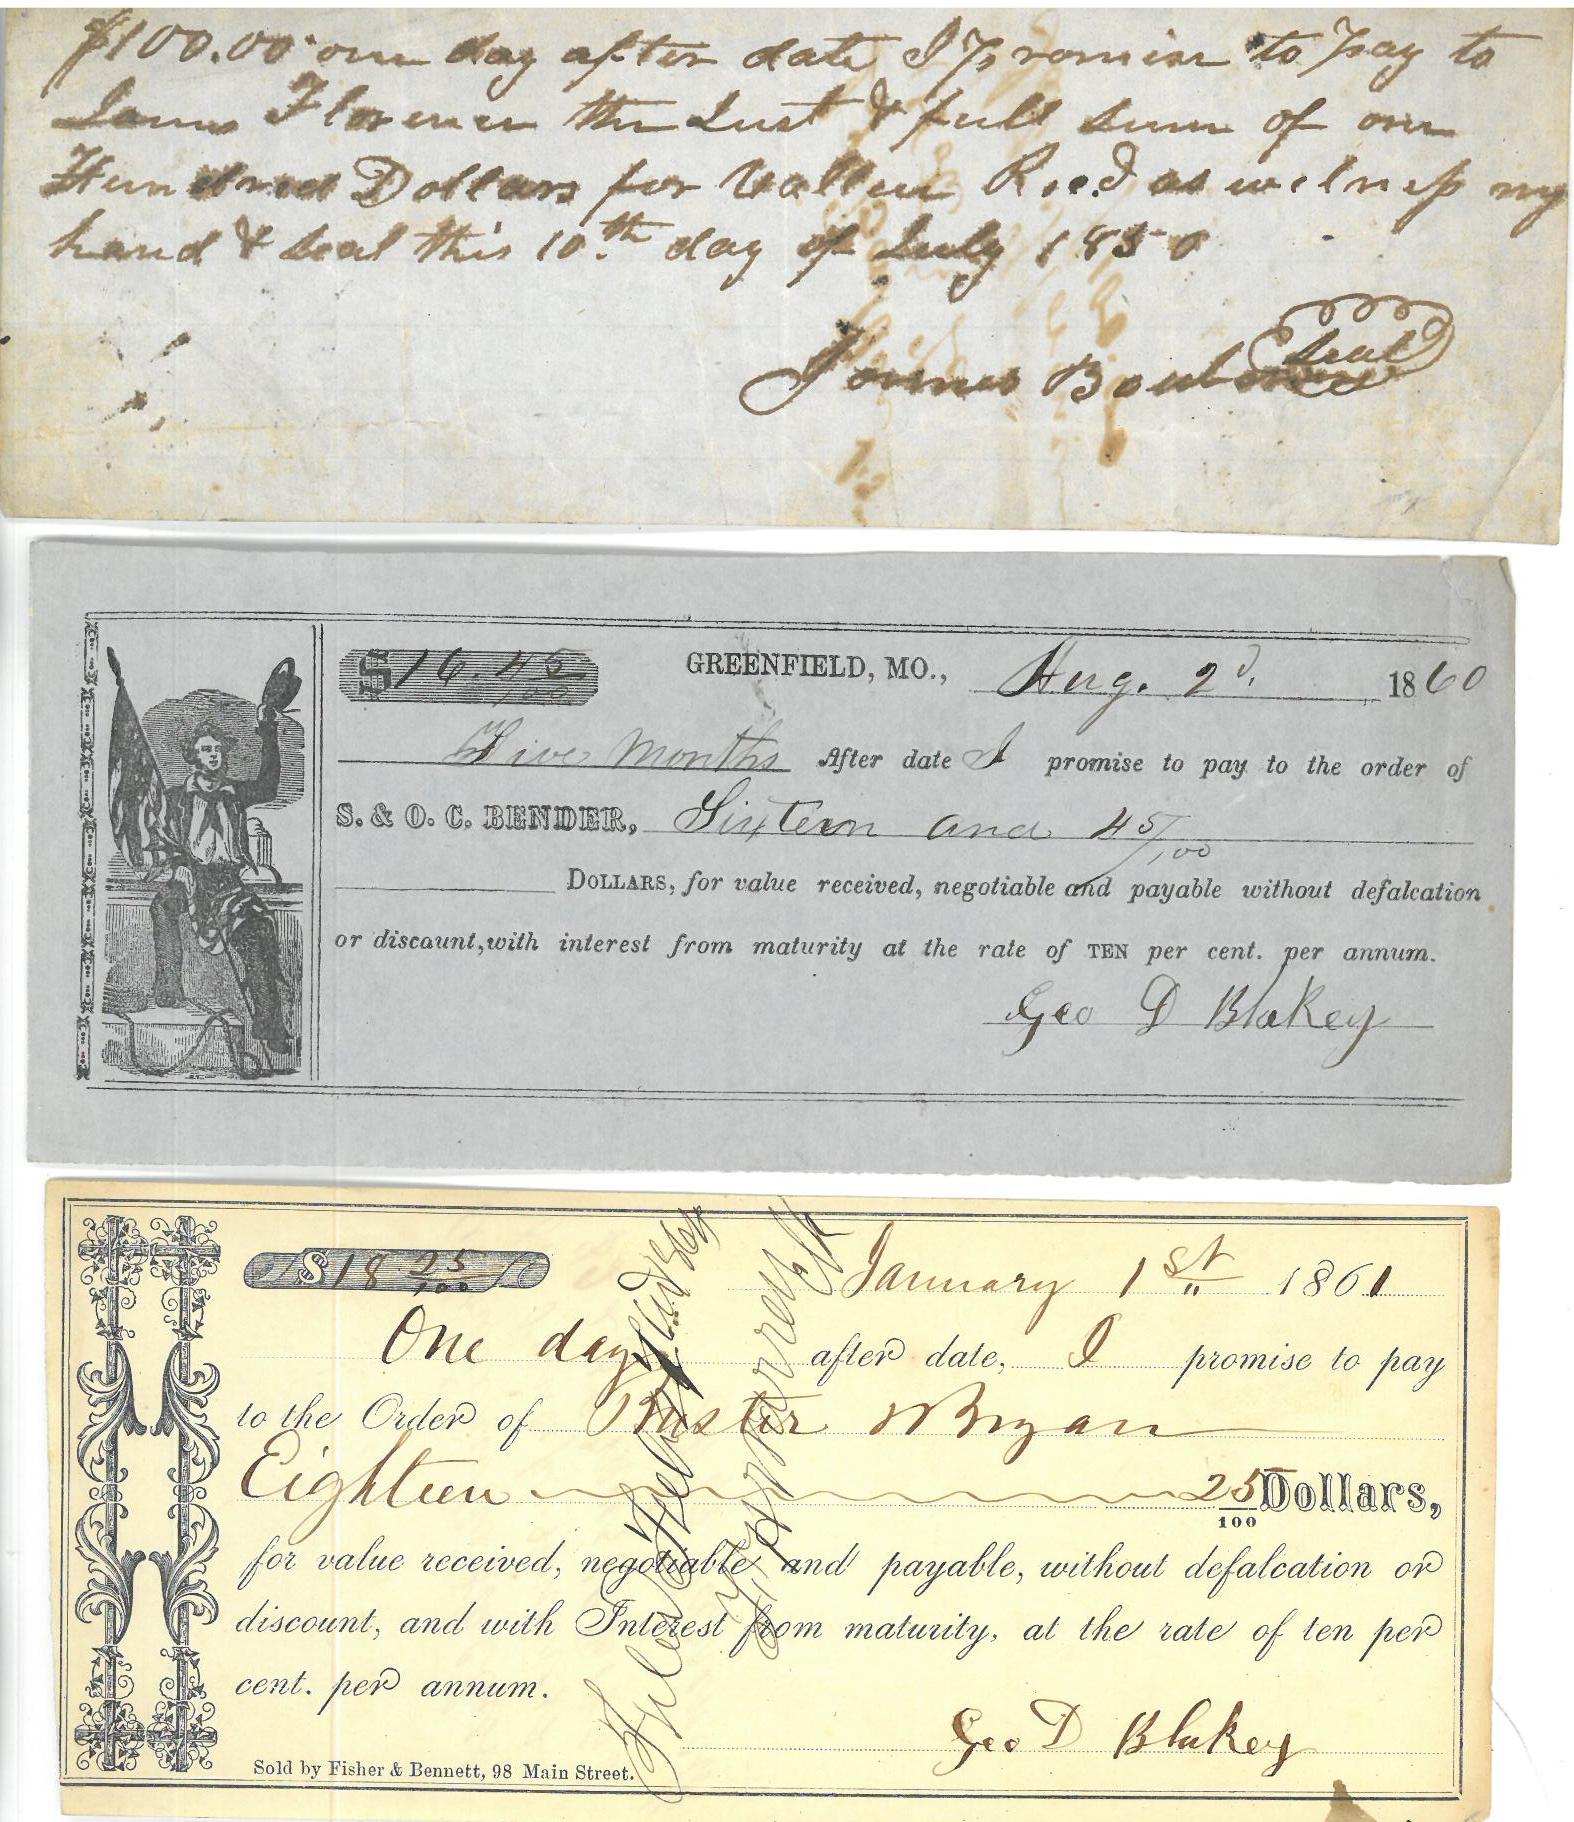 $100.00 one day after date I Promise to Pay to
James Florence the Just & full sum of one
Hundred Dollars for Vallue Rec.d as witness my
hand & seal this 10.th day of July 1850
James seal
$16.45/100 GREENFIELD, MO., Aug. 2d. 1860
Five Months After date I promise to pay to the order of
S. & O. C. BENDER, Sixteen and 45/100
DOLLARS, for value received, negotiable and payable without defalcation
or discaunt, with interest from maturity at the rate of TEN per cent. per annum.
Geo D Blakey
$18 25/100 January 1st 1861
One day after date, I promise to pay
to the Order of Buster & Bryan
Eighteen 25/100 Dollars,
for value received, negotiable and payable, without defalcation or
discount, and with Interest from maturity, at the rate of ten per
cent. per annum.
Geo D Blakey
Sold by Fisher & Bennett, 98 Main Street.
Filed